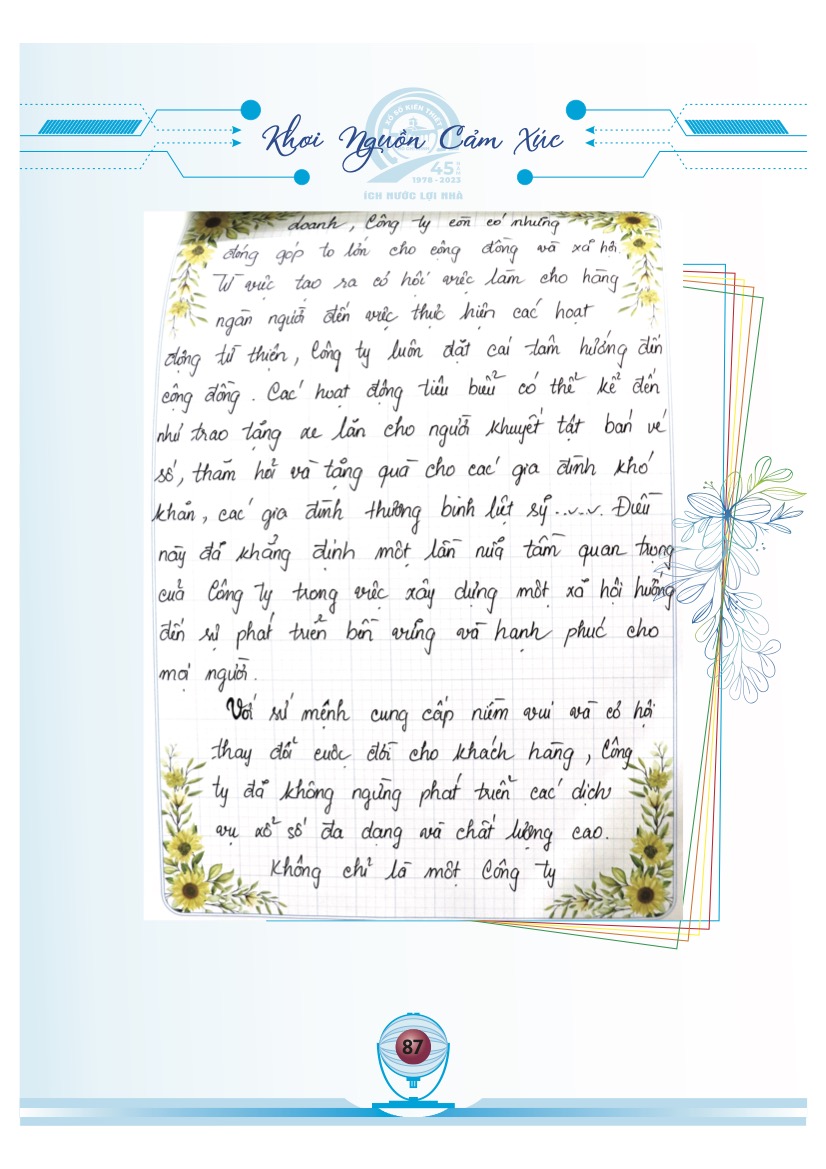 XỔ SỐ KIẾN THIẾT
Khơi Nguồn Cảm Xúc
45 NĂM
1978 - 2023
ÍCH NƯỚC LỢI NHÀ
doanh, Công ty còn có những
đóng góp to lớn cho cộng đồng và xã hội.
Từ việc tạo ra cơ hội việc làm cho hàng
ngàn người đến việc thực hiện các hoạt
động từ thiện, Công ty luôn đặt cái tâm hướng đến
cộng đồng. Các hoạt động tiêu biểu có thể kể đến
như trao tặng xe lăn cho người khuyết tật bán vé
số, thăm hỏi và tặng quà cho các gia đình khó
khăn, các gia đình thương binh liệt sỹ...v.v. Điều
này đã khẳng định một lần nữa tầm quan trọng
của Công ty trong việc xây dựng một xã hội hướng
đến sự phát triển bền vững và hạnh phúc cho
mọi người.
Với sứ mệnh cung cấp niềm vui và cơ hội
thay đổi cuộc đời cho khách hàng, Công
ty đã không ngừng phát triển các dịch
vụ xổ số đa dạng và chất lượng cao.
Không chỉ là một Công ty
87